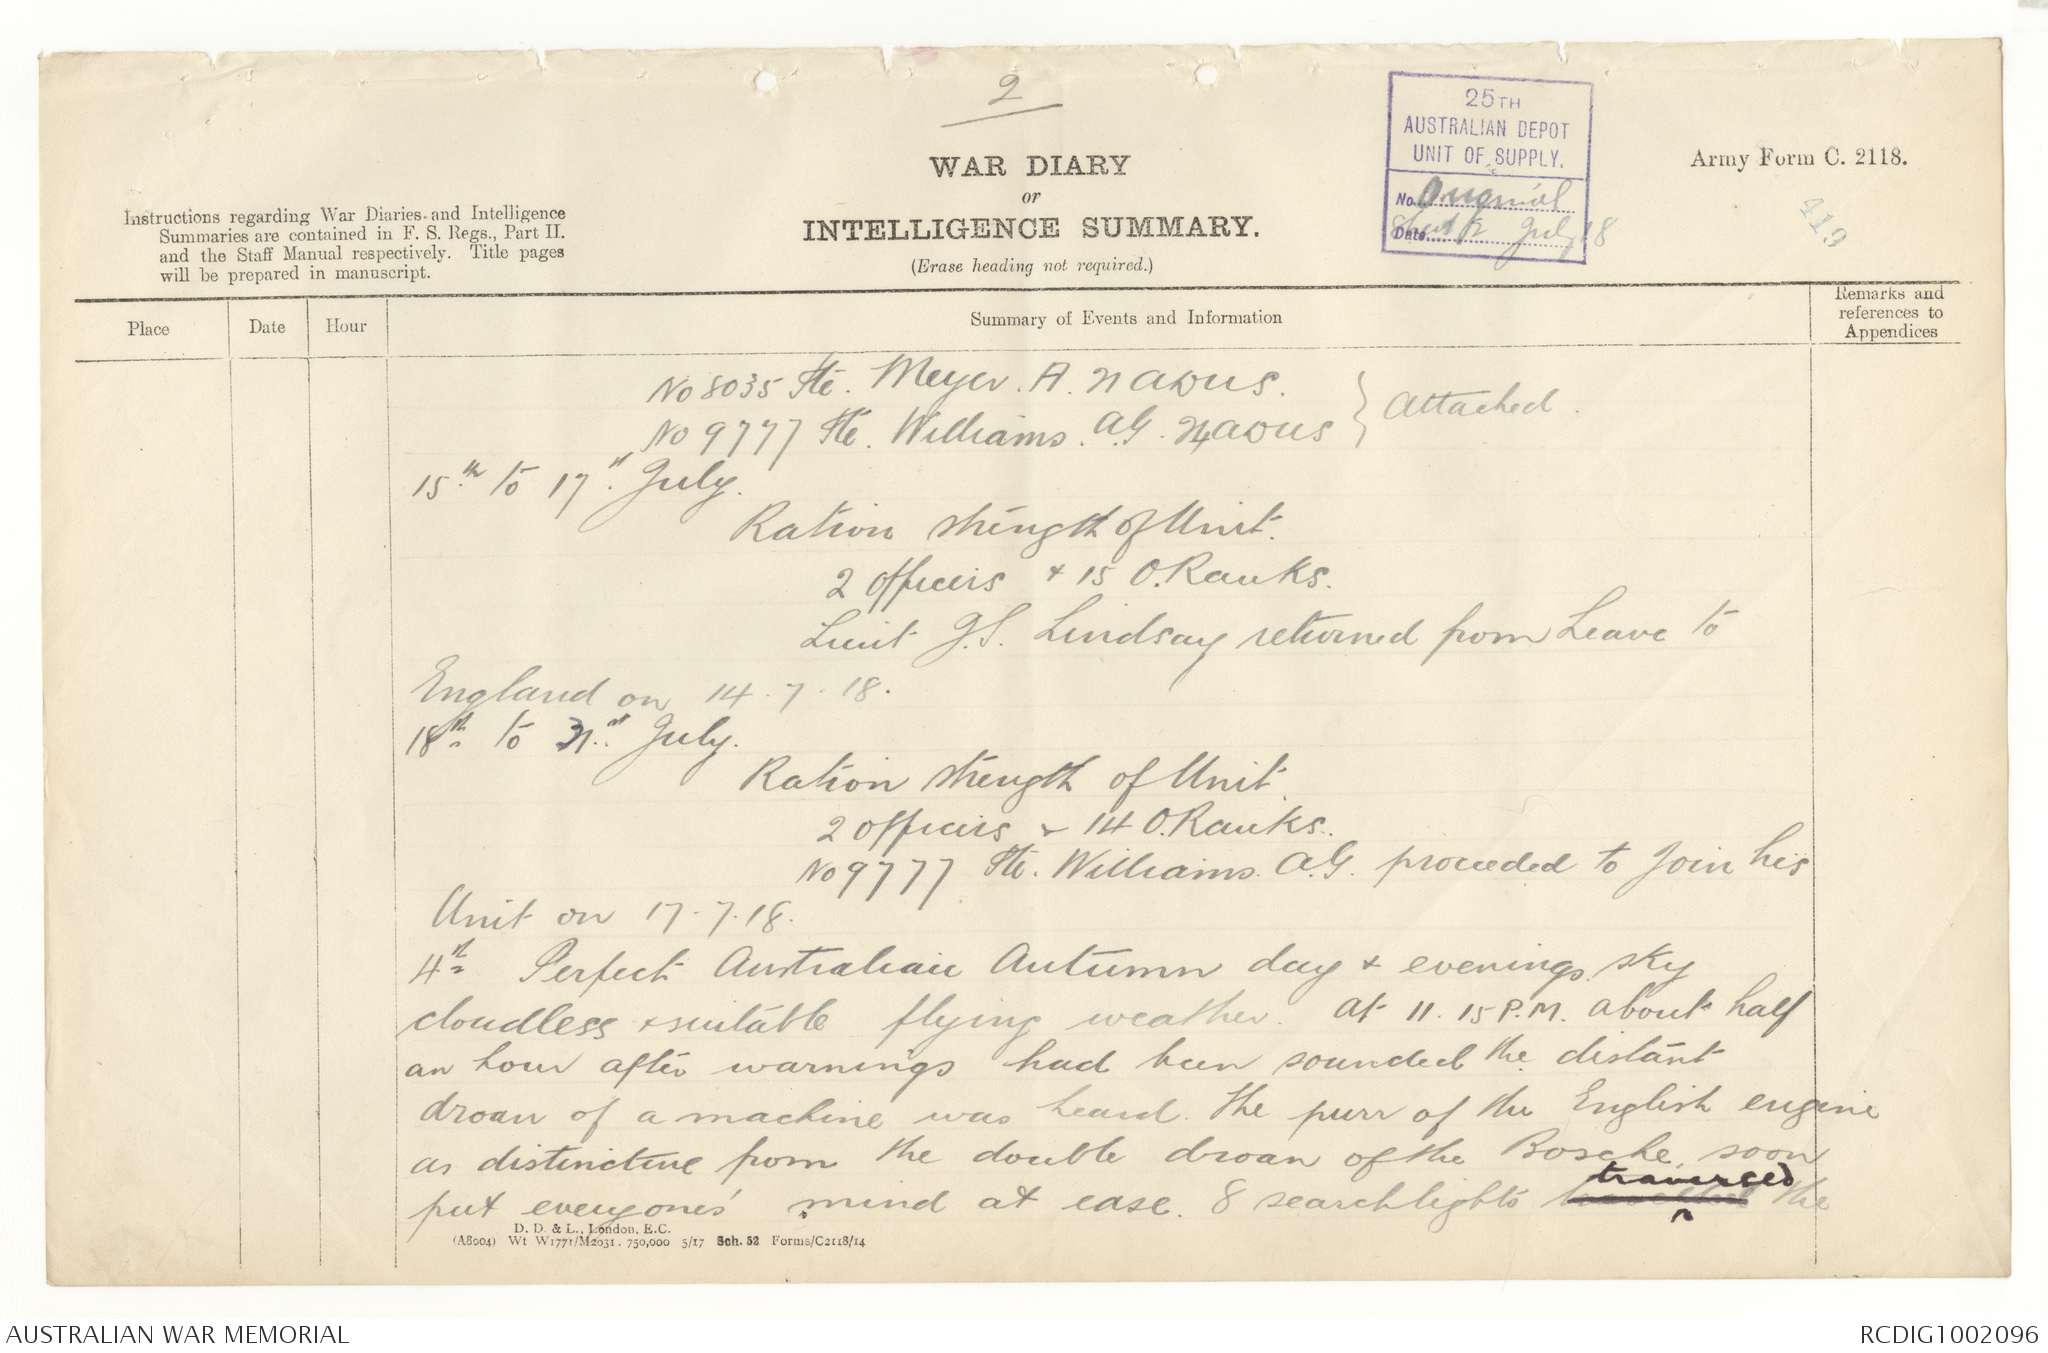 2
25TH
AUSTRALIAN DEPOT
UNIT OF SUPPLY.
No. Original
Date. Sheet 2 July 18
Army Form C. 2118.
419
WAR DIARY
or
INTELLIGENCE SUMMARY.
(Erase heading not required.)
Instructions regarding War Diaries and Intelligence
Summaries are contained in F. S. Regs., Part II.
and the Staff Manual respectively. Title pages
will be prepared in manuscript.
Place
Date
Hour
Summary of Events and Information
Remarks and
references to
Appendices
No 8035 Pte. Meyer. A. 21 ADUS.
No 9777 Pte. Williams. A.G. 24 ADUS } Attached.
15th to 17th July.
Ration strength of Unit.
2 Officers + 15 O.Ranks.
Lieut J.S. Lindsay returned from Leave to
England on 14.7.18.
18th to 31st July.
Ration strength of Unit.
2 Officers + 14 O.Ranks.
No 9777 Pte. Williams. A.G. proceeded to join his
Unit on 17.7.18.
4th Perfect Australian Autumn day + evenings sky
cloudless + suitable flying weather. At 11.15 P.M. about half
an hour after warnings had been sounded the distant
droan of a machine was heard. The purr of the English engine
as distinctive from the double droan of the Bosche, soon
put everyones' mind at ease. 8 searchlights traversed the
D. D. & L., London, E.C.
(A8004) Wt W1771/M2031. 750,000 5/17 Sch. 52 Forms/C2118/14
AUSTRALIAN WAR MEMORIAL
RCDIG1002096